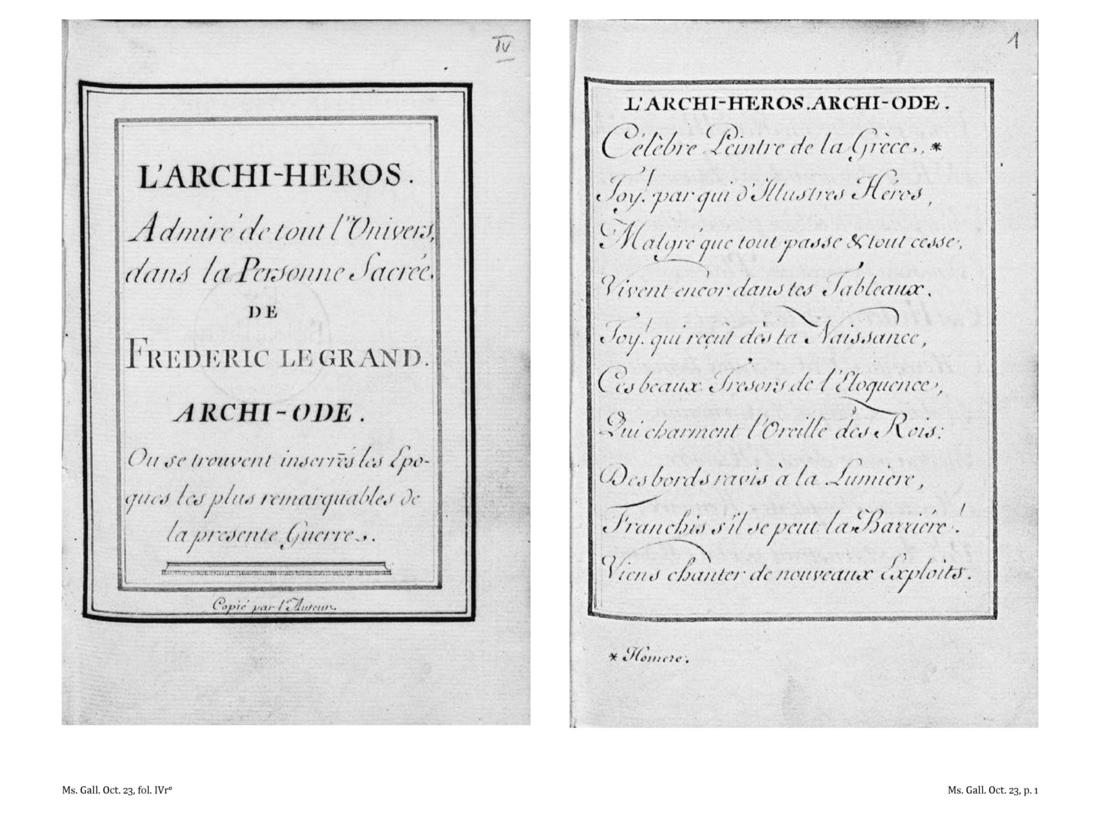 IV
L'ARCHI-HEROS.
Admiré de tout l'Univers,
dans la Personne Sacrée
DE
FREDERIC LE GRAND.
ARCHI-ODE.
Ou se trouvent inserrés les Epo-
ques les plus remarquables de
la presente Guerre.
Copié par l'Auteur.
1
L'ARCHI-HEROS. ARCHI-ODE.
Célèbre Peintre de la Grèce, *
Toy! par qui d'Illustres Héros,
Malgré que tout passe & tout cesse,
Vivent encor dans tes Tableaux.
Toy! qui reçut dès ta Naissance,
Ces beaux Tresors de l'Eloquence,
Qui charment l'Oreille des Rois:
Des bords ravis à la Lumiere,
Franchis s'il se peut la Barriére!
Viens chanter de nouveaux Exploits.
* Homere.
Ms. Gall. Oct. 23, fol. IVrº
Ms. Gall. Oct. 23, p. 1